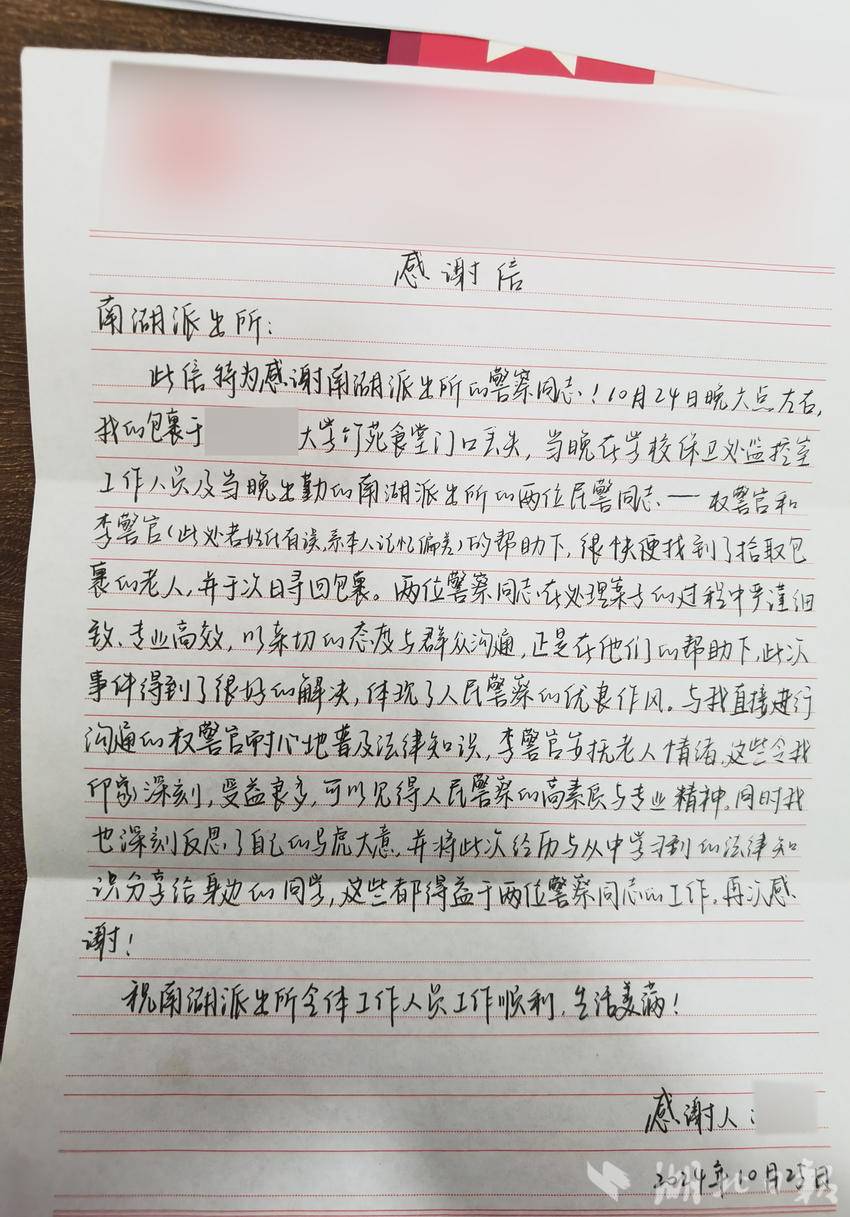 感谢信
南湖派出所：
此信特为感谢南湖派出所的警察同志！10月24日晚六点左右，
我的包裹于 大学竹苑食堂门口丢失，当晚在学校保卫处监控室
工作人员及当晚出勤的南湖派出所的两位民警同志——权警官和
李警官（此处若姓氏有误，系本人记忆偏差）的帮助下，很快便找到了拾取包
裹的老人，并于次日寻回包裹。两位警察同志在处理案子的过程中严谨细
致、专业高效，以亲切的态度与群众沟通，正是在他们的帮助下，此次
事件得到了很好的解决，体现了人民警察的优良作风。与我直接进行
沟通的权警官耐心地普及法律知识，李警官安抚老人情绪，这些令我
印象深刻，受益良多，可以见得人民警察的高素质与专业精神。同时我
也深刻反思了自己的马虎大意，并将此次经历与从中学习到的法律知
识分享给身边的同学，这些都得益于两位警察同志的工作，再次感
谢！
祝南湖派出所全体工作人员工作顺利，生活美满！
感谢人：
2024年10月25日
湖北日报